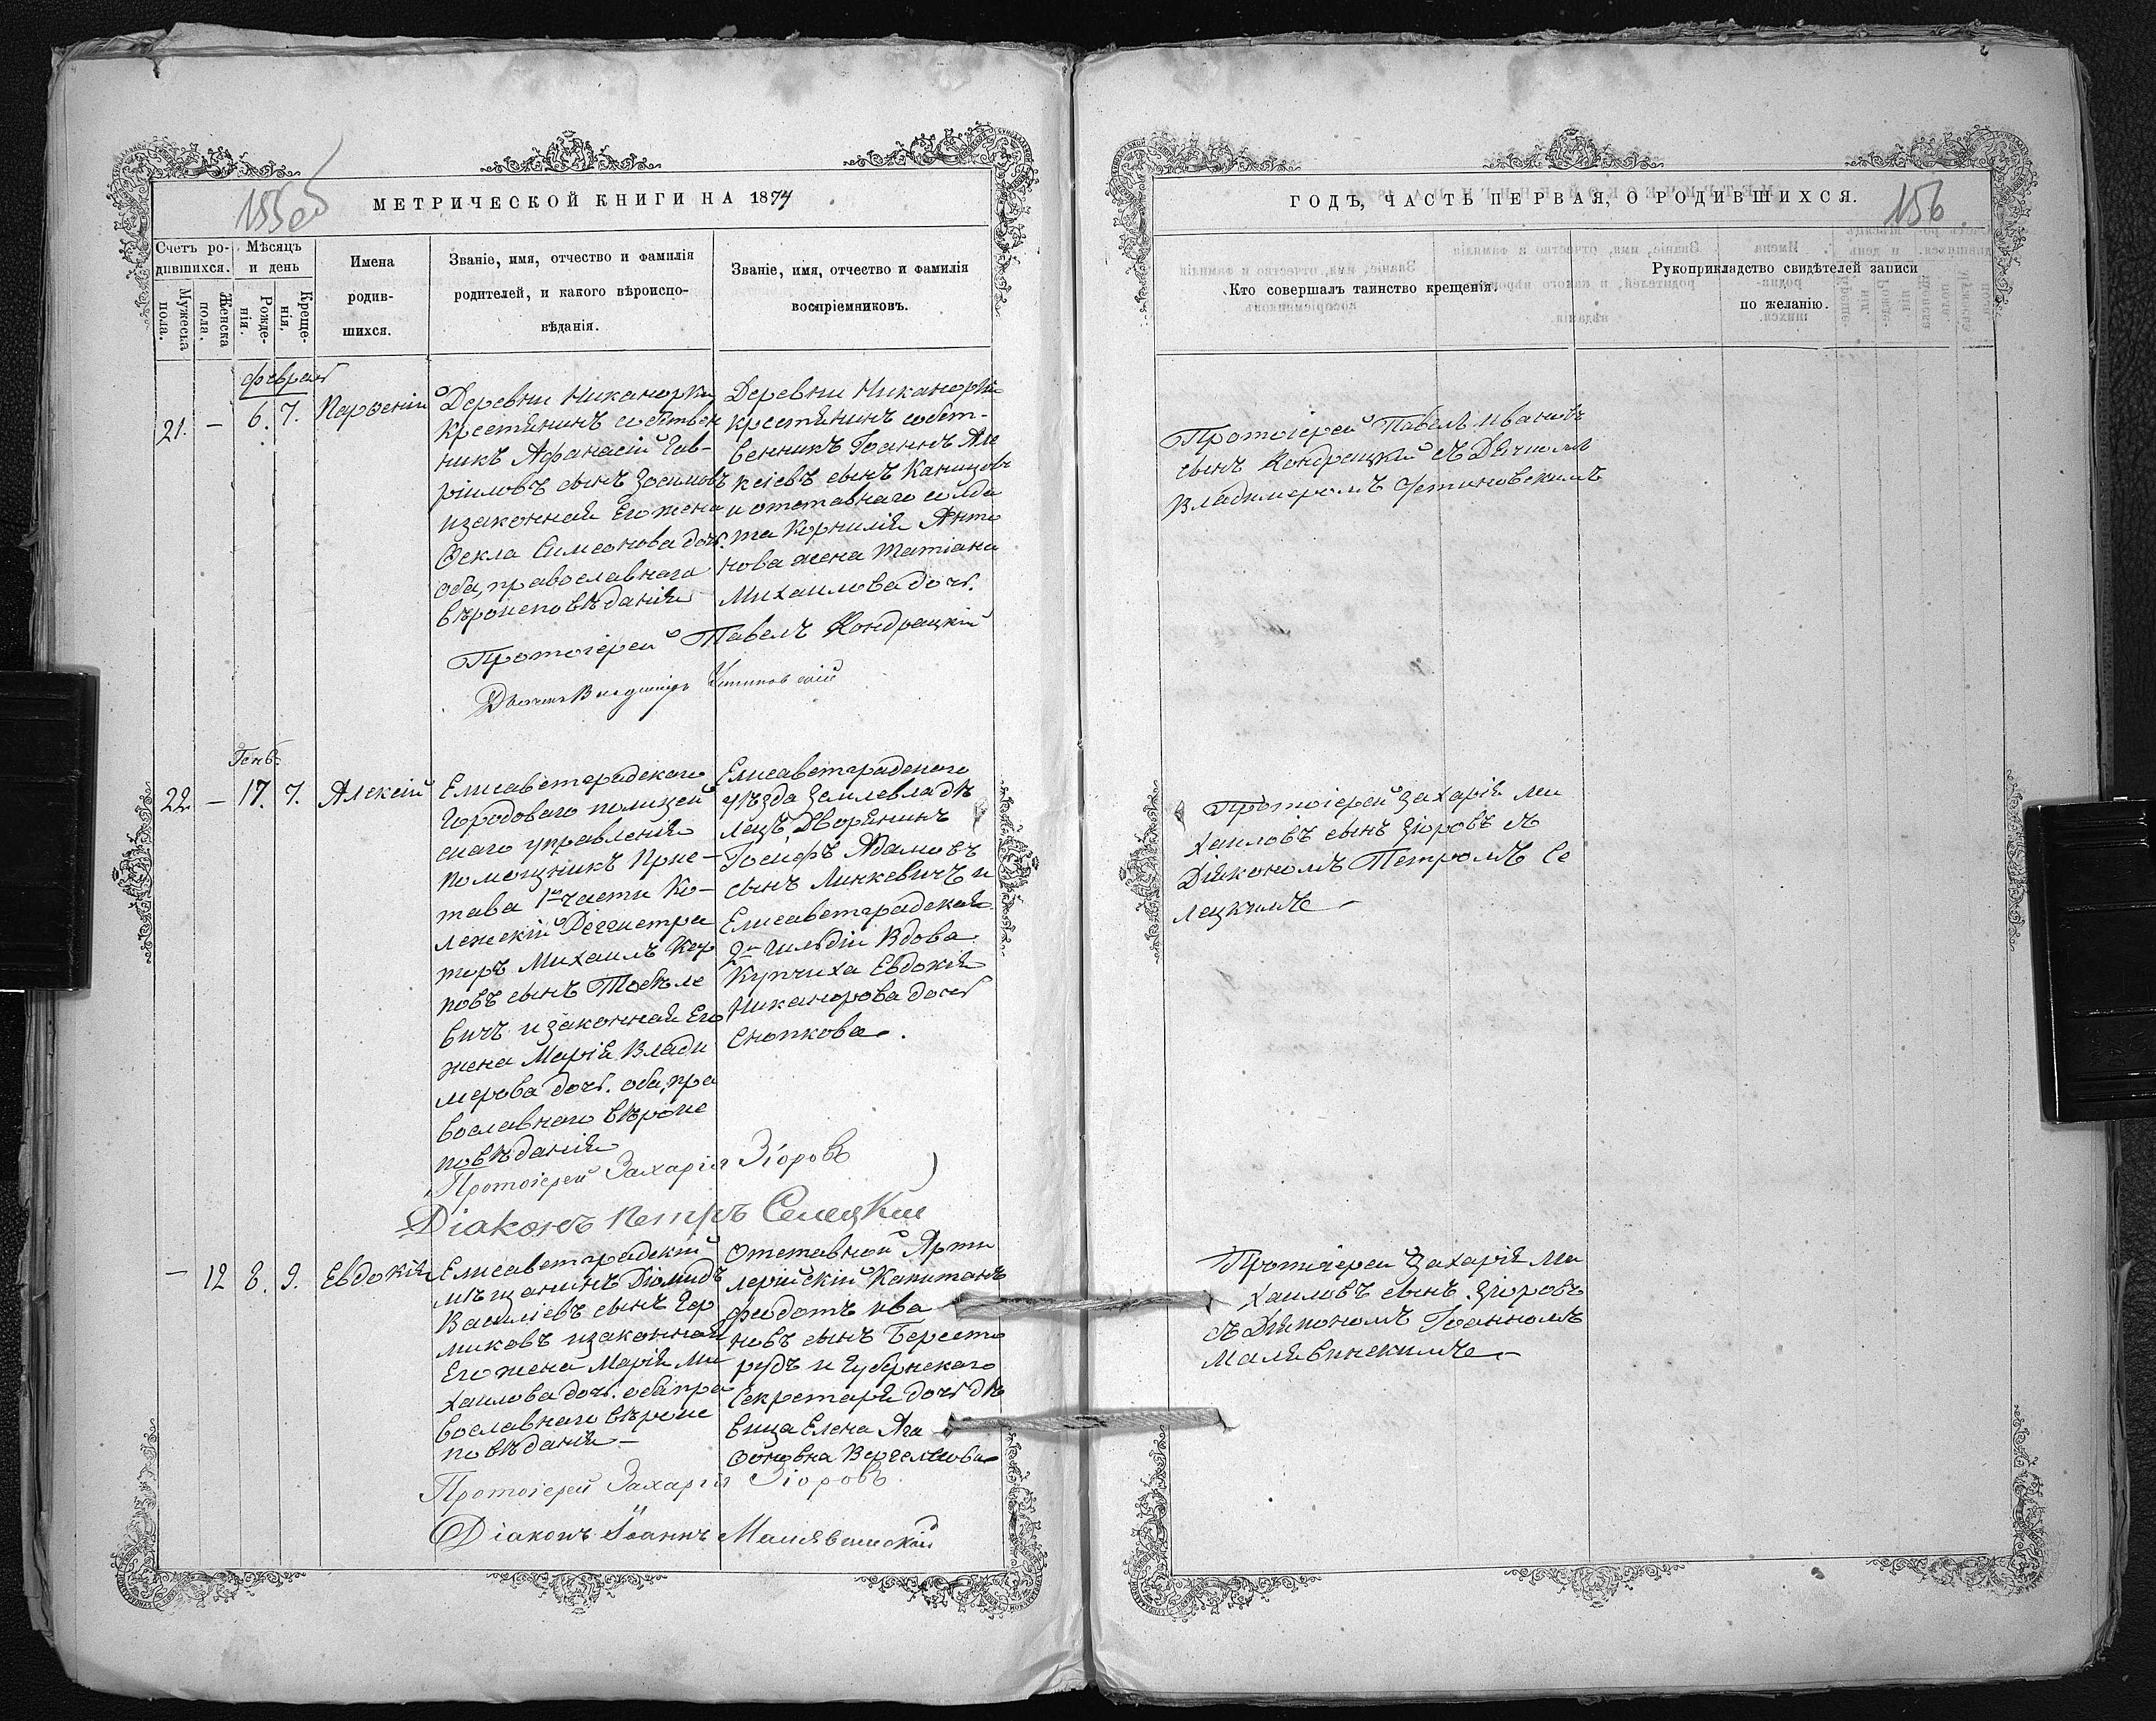 155об
МЕТРИЧЕСКОЙ КНИГИ НА 1874
Счетъ ро-
дившихся.
Мужеска
пола.
Женска
пола.
Мѣсяцъ
и день
Рожде-
нія.
Креще-
нія.
Имена
родив-
шихся.
Званіе, имя, отчество и фамилія
родителей, и какого вѣроиспо-
вѣданія.
Званіе, имя, отчество и фамилія
воспріемниковъ.
Февраль
21. – 6. 7. Парѳеній
Деревни Никанорки
крестьянинъ собствен
никъ Афанасій Гав-
ріиловъ сынъ Зосимовъ
и законная Его жена
Ѳекла Симеонова дочь.
оба, православнаго
вѣроисповѣданія
Деревни Никанорки
крестьянинъ собст-
венникъ Іоаннъ Але
ксіевъ сынъ
и отставнаго солда
та Корнилія Анто
нова жена Татіана
Михаилова дочь.
Протоіерей Павелъ Кондрацкій
Дьячекъ Владиміръ
Генв.
22 – 17. 7. Алексій
Елисаветградскаго
Городоваго полицей
скаго управленія
помощникъ При-
става 1й части Ко-
лежскій Регистра
торъ Михаилъ Кар
повъ сынъ
вичъ и законная Его
жена Марія Влади
мерова дочь. оба, пра
вославнаго вѣроис
повѣданія
Елисаветградскаго
уѣзда Землевладѣ
лецъ, Дворянинъ
Іосифъ Адамовъ
сынъ Линкевичъ и
Елисаветградская
2й Гильдіи Вдова
Купчиха Евдокія
Никанорова дочь
Снопкова.
Протоіерей Захарія Зіоровъ
Діаконъ Петръ Селецкій
– 12 8. 9. Евдокія
Елисаветградскій
мѣщанинъ Діомидъ
Василіевъ сынъ Гор
миковъ и законная
Его жена Марія Ми
хаилова дочь. оба пра
вославнаго вѣроис
повѣданія –
Отставной Арти
лерійскій Капитанъ
Федотъ Ива
новъ сынъ Бересто
рудъ и Губернскаго
Секретаря дочь дѣ
вица Елена Ага
ѳоновна
Протоіерей Захарія Зіоровъ
Діаконъ Іоаннъ Малявинскій
ГОДЪ, ЧАСТЬ ПЕРВАЯ, О РОДИВШИХСЯ.
156
Кто совершалъ таинство крещенія.
Рукоприкладство свидѣтелей записи
по желанію.
Протоіерей Павелъ Ивановъ
сынъ Кондрацкій съ Дьячкомъ
Владимеромъ Устиновскимъ
Протоіерей Захарія Ми
хаиловъ сынъ Зіоровъ съ
Діякономъ Петромъ Се
лецкимъ –
Протоіерей Захарія Ми
хаиловъ сынъ Зіоровъ
съ Діякономъ Іоанномъ
Малявинскимъ –